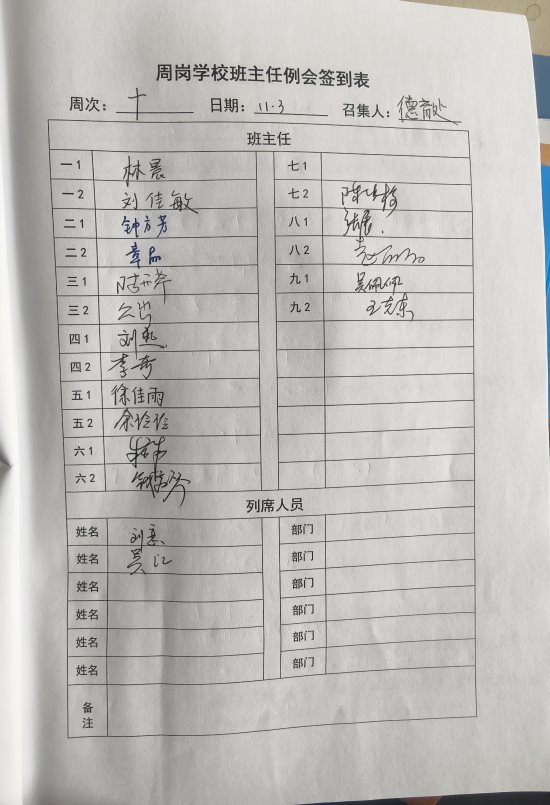 周岗学校班主任例会签到表
周次：十 日期：11.3 召集人：德育处
班主任
一1 林晨 七1
一2 刘佳敏 七2
二1 钟方芳 八1 张晨.
二2 章品 八2
三1 九1 吴佩佩
三2 九2 王克东
四1 刘燕
四2 李奇
五1 徐佳雨
五2 余玲玲
六1
六2
列席人员
姓名 刘亮 部门
姓名 吴江 部门
姓名 部门
姓名 部门
姓名 部门
姓名 部门
备注